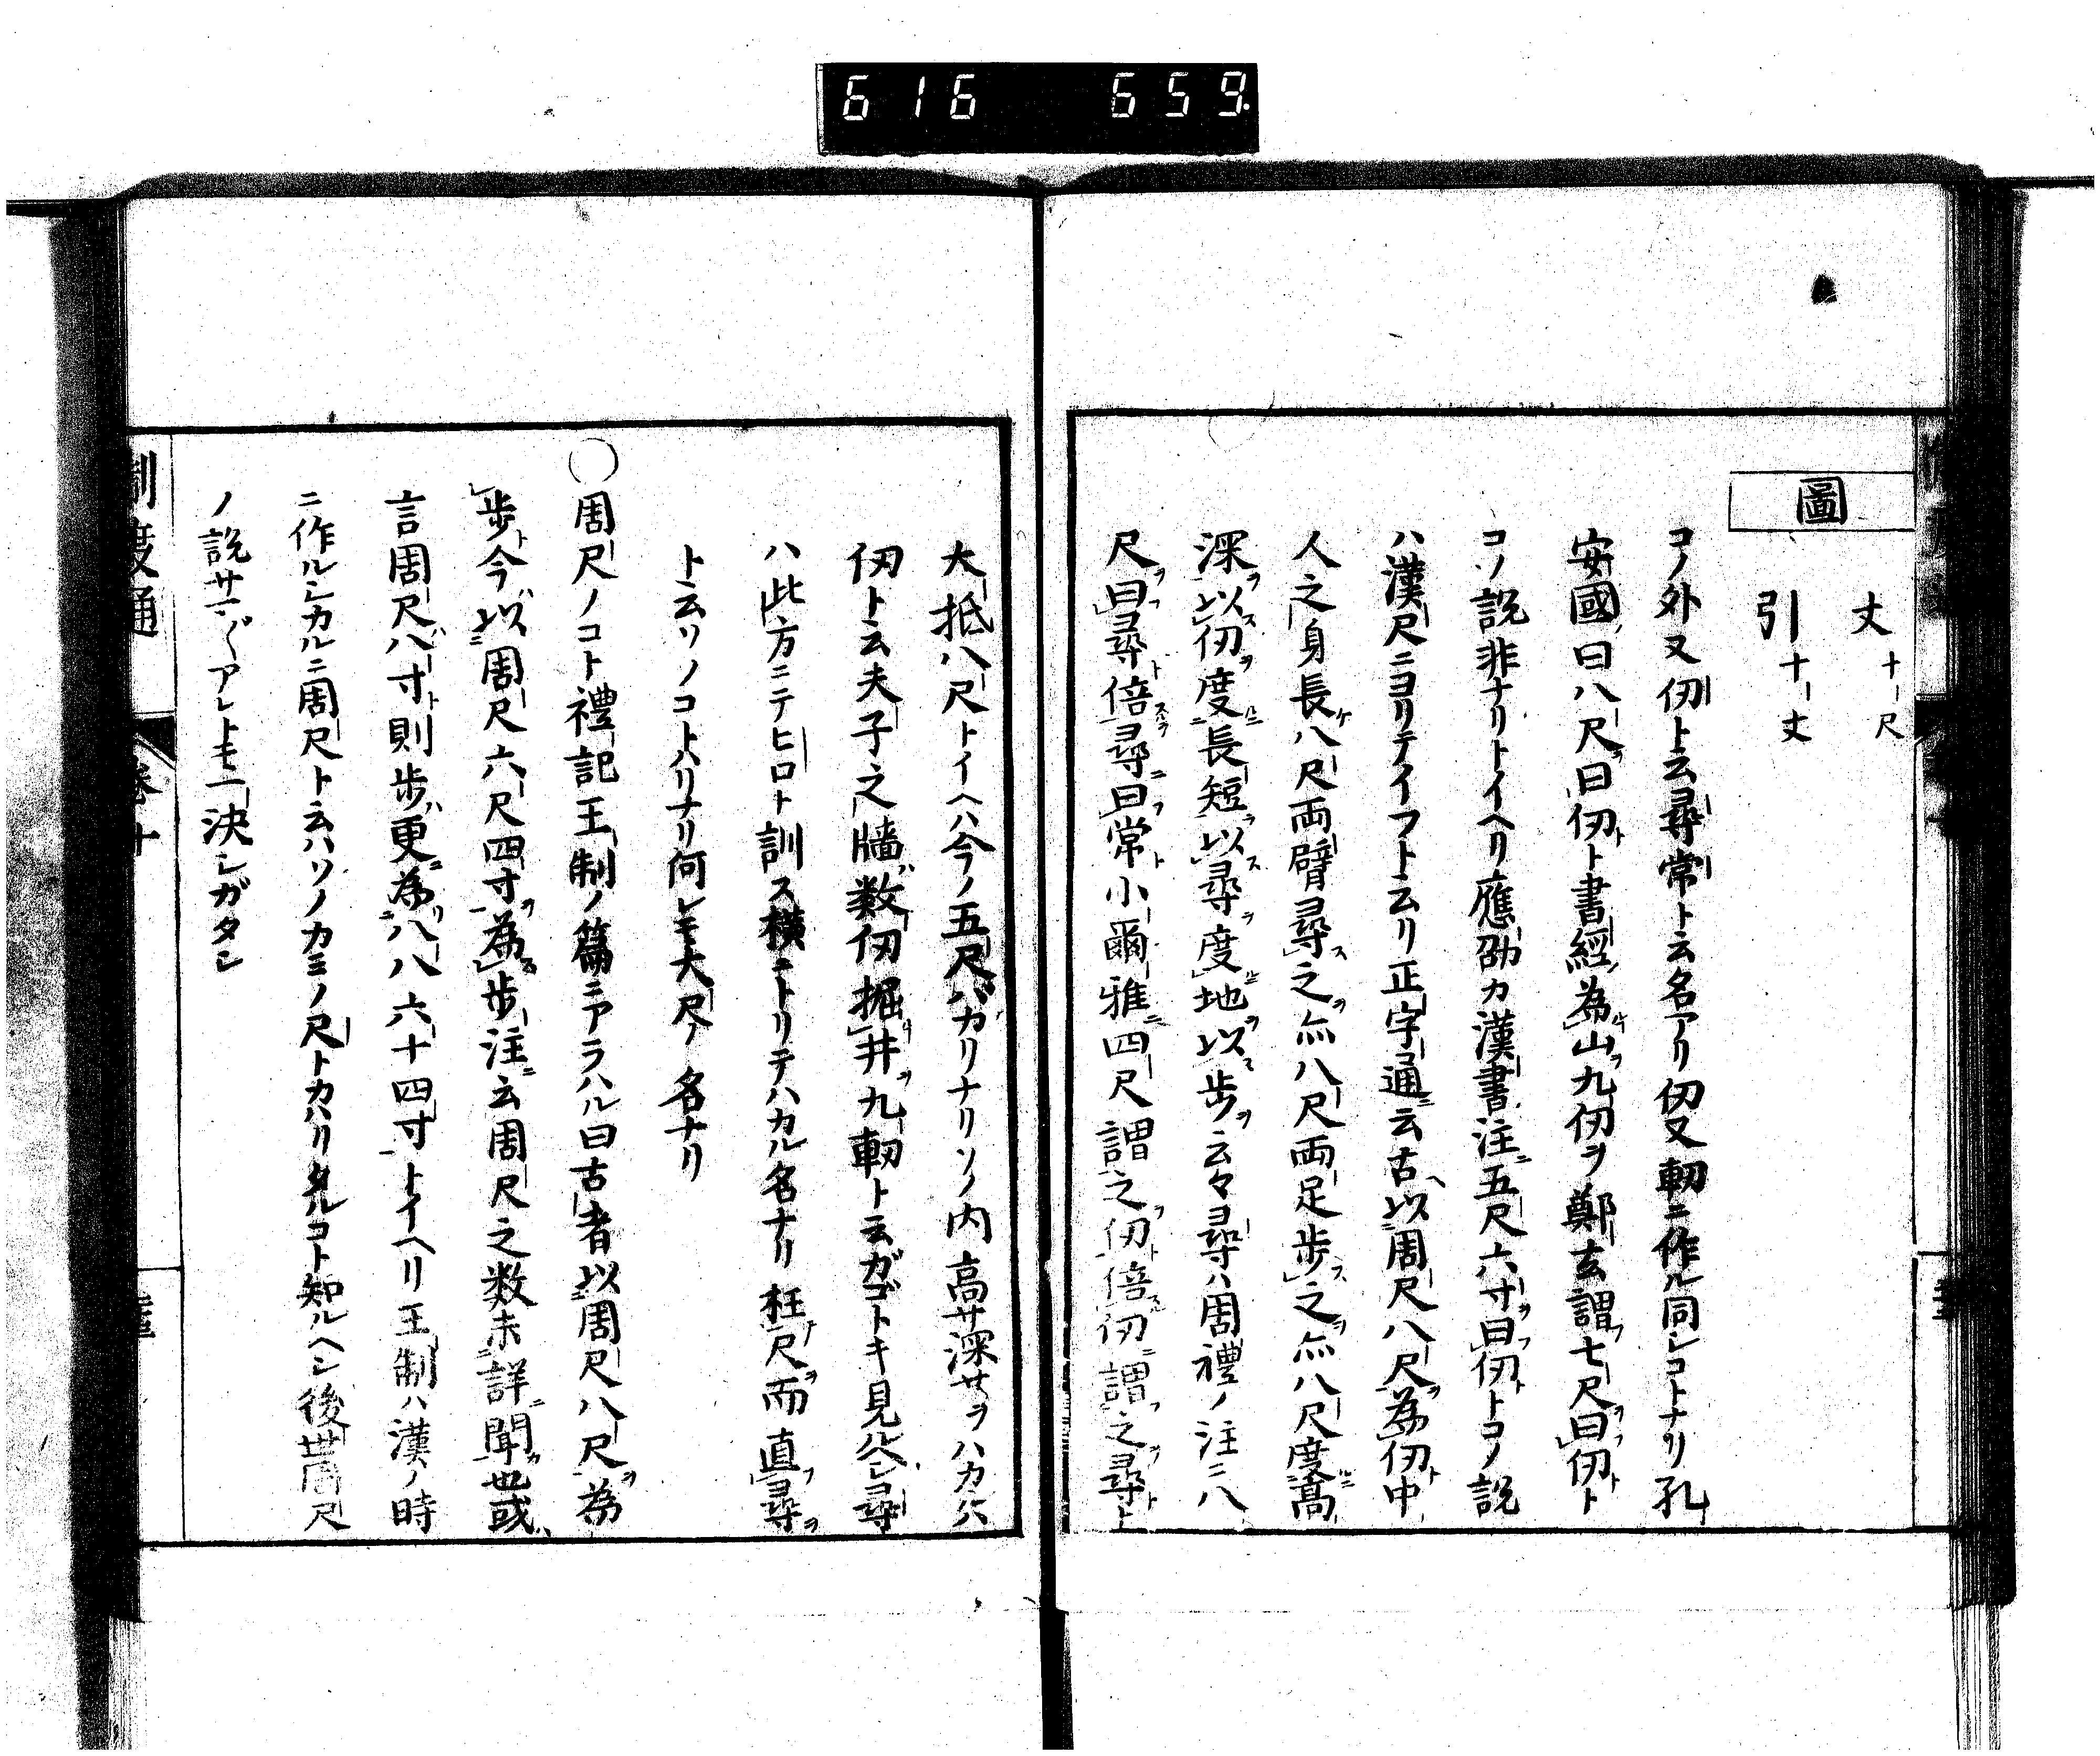 616 659.
圖
丈 十尺
引 十丈
コノ外又仞ト云尋常ト云名アリ仞又軔ニ作ル同シコトナリ孔
安國曰八尺曰仞ト書經為山九仞ヲ鄭玄謂七尺曰仞ト
コノ説非ナリトイヘリ應劭カ漢書注五尺六寸曰仞トコノ説
ハ漢尺ニヨリテイフト云リ正字通云古以周尺八尺為仞中
人之身長八尺両臂尋之亦八尺両足歩之亦八尺度高
深以仞度長短以尋度地以歩云々尋ハ周禮ノ注ニ八
尺曰尋倍尋曰常小爾雅四尺謂之仞倍仞謂之尋ト
大抵八尺トイヘハ今ノ五尺バカリナリソノ内高サ深サヲハカルハ
仞ト云夫子之牆数仞掘井九軔ト云ガゴトキ見ルヘシ尋
ハ此方ニテヒロト訓ス横ニトリテハカル名ナリ枉尺而直尋
ト云ソノコトハリナリ何レモ大尺ノ名ナリ
〇周尺ノコト禮記王制ノ篇ニアラハル曰古者以周尺八尺為
歩今以周尺六尺四寸為歩注云周尺之数未詳聞也或
言周尺八寸則歩更為八八六十四寸トイヘリ王制ハ漢ノ時
ニ作ルシカルニ周尺ト云ハソノカミノ尺トカハリタルコト知ルヘシ後世周尺
ノ説サマ〲アレトモ一決シガタシ
制度通 巻十